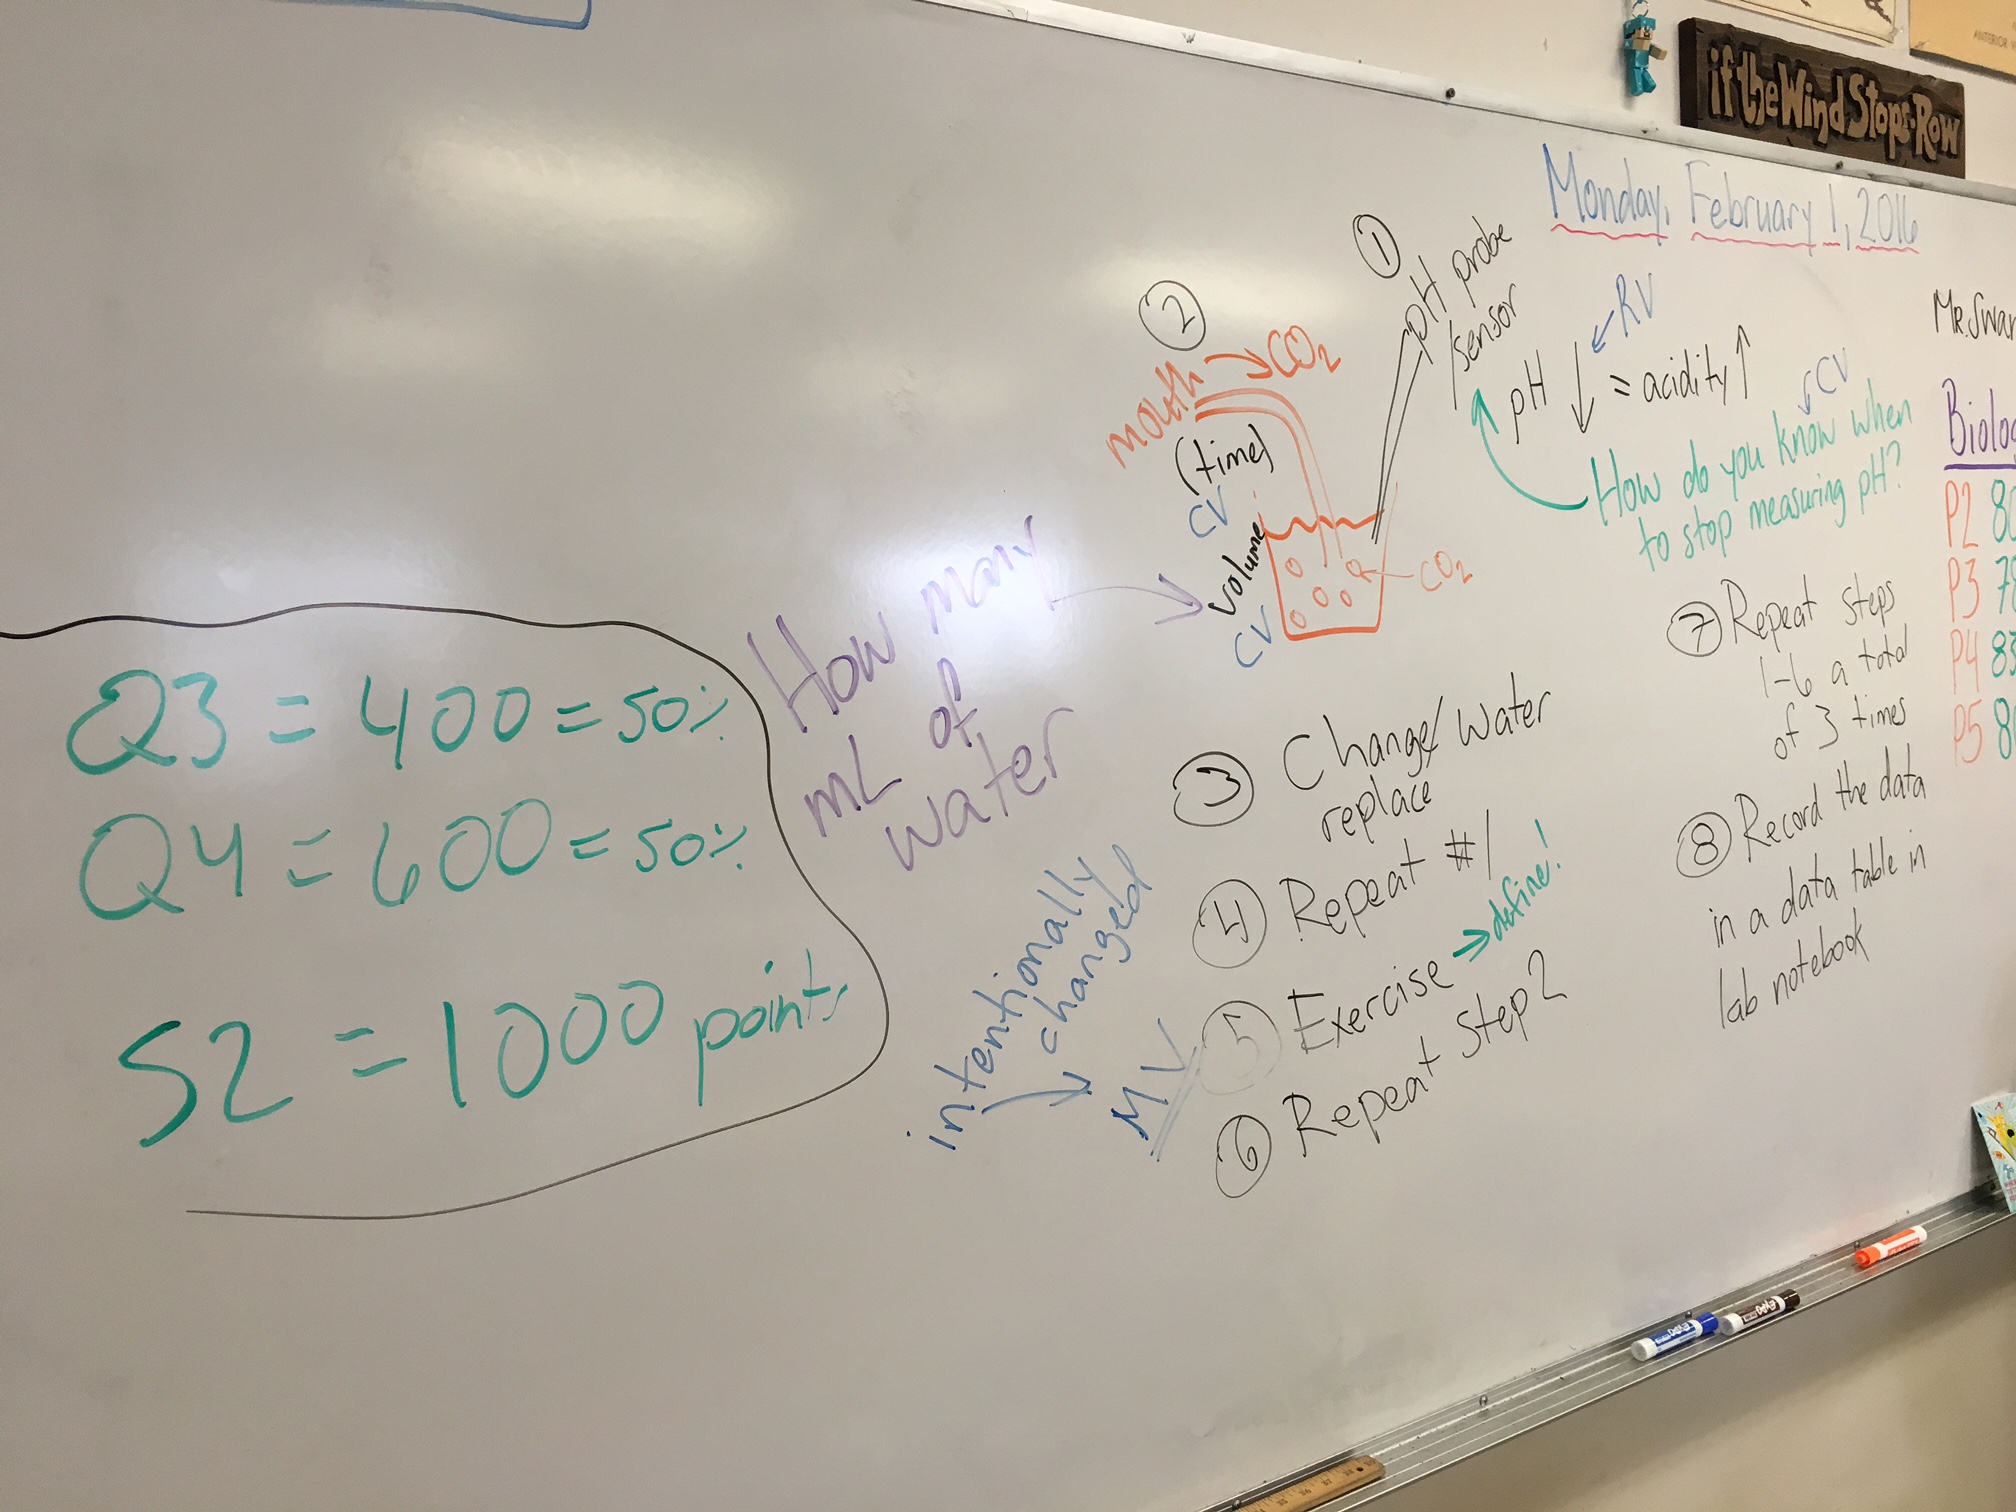 if the Wind Stops-Row
Monday, February 1, 2016
Q3 = 400 = 50%
Q4 = 600 = 50%
S2 = 1000 points
How many
mL of
water
①
pH probe
/sensor
②
mouth → CO2
(time)
CV
volume
CV
CO2
pH ↓ = acidity ↑
RV
CV
How do you know when
to stop measuring pH?
③ Change/ water
replace
④ Repeat #1
⑤ Exercise → define!
⑥ Repeat Step 2
intentionally
changed
MV
⑦ Repeat steps
1-6 a total
of 3 times
⑧ Record the data
in a data table in
lab notebook
P2
P3
P4
P5
EXPO
EXPO